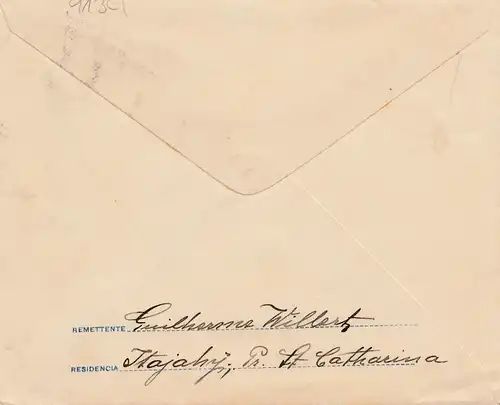 REMETTENTE Guilherme Willert
RESIDENCIA Itajahy, Pr. St Catharina